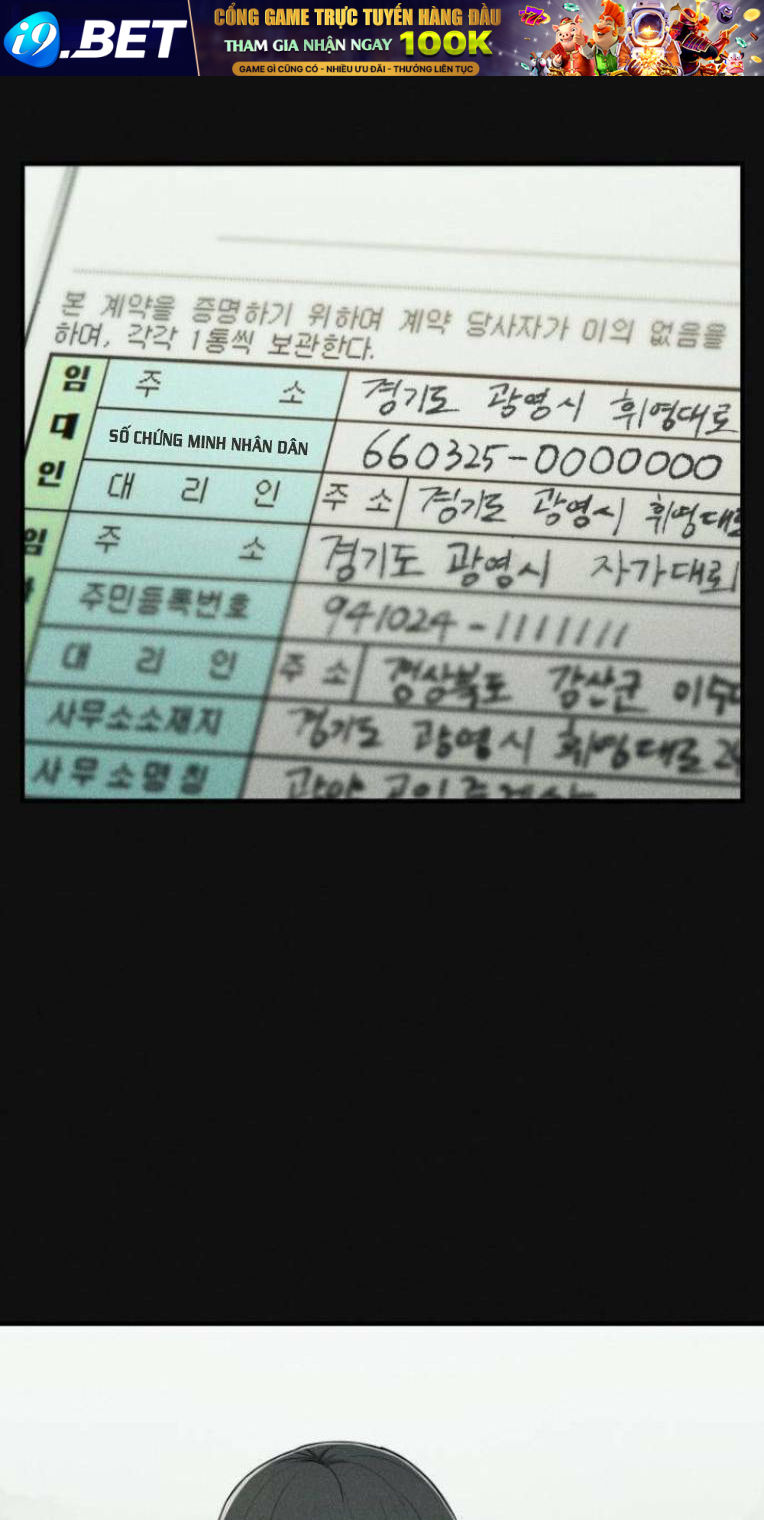 i9.BET
CỔNG GAME TRỰC TUYẾN HÀNG ĐẦU
THAM GIA NHẬN NGAY 100K
GAME GÌ CŨNG CÓ - NHIỀU ƯU ĐÃI - THƯỞNG LIÊN TỤC
777
본 계약을 증명하기 위하며 계약 당사자가 이의 없음을
하며, 각각 1통씩 보관한다.
임대인
주 소 경기도 광영시 휘영대로
SỐ CHỨNG MINH NHÂN DÂN 660325-0000000
대 리 인 주 소 경기도 광영시 휘영대로
임
주 소 경기도 광영시 자가대로
주민등록번호 941024-1111111
대 리 인 주 소 경상북도 강산군 이수
사무소소재지 경기도 광영시 휘영대로 24
사무소명칭